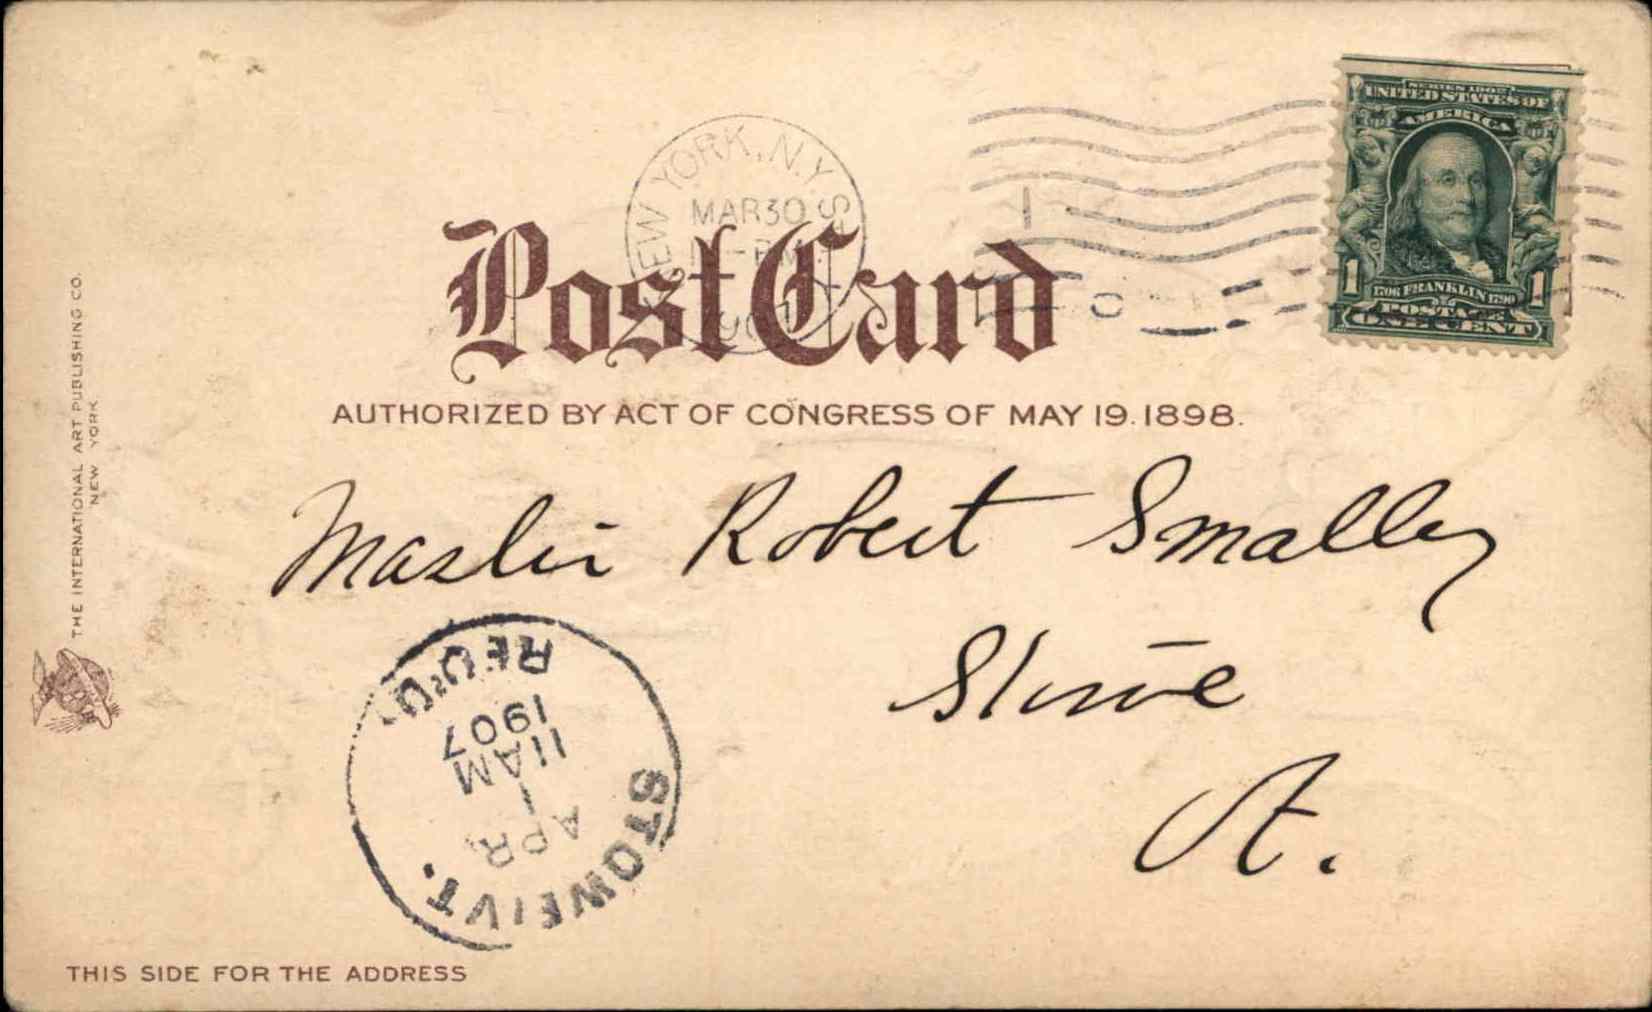 NEW YORK, N.Y. STA.
MAR 30
PM
1907
SERIES 1902
UNITED STATES OF
AMERICA
1 1706 FRANKLIN 1790 1
POSTAGE
ONE CENT
Post Card
AUTHORIZED BY ACT OF CONGRESS OF MAY 19. 1898.
THE INTERNATIONAL ART PUBLISHING CO.
NEW YORK
Master Robert Smalley
Stowe
Vt.
STOWE, VT.
APR
1
11 AM
1907
REC'D.
THIS SIDE FOR THE ADDRESS